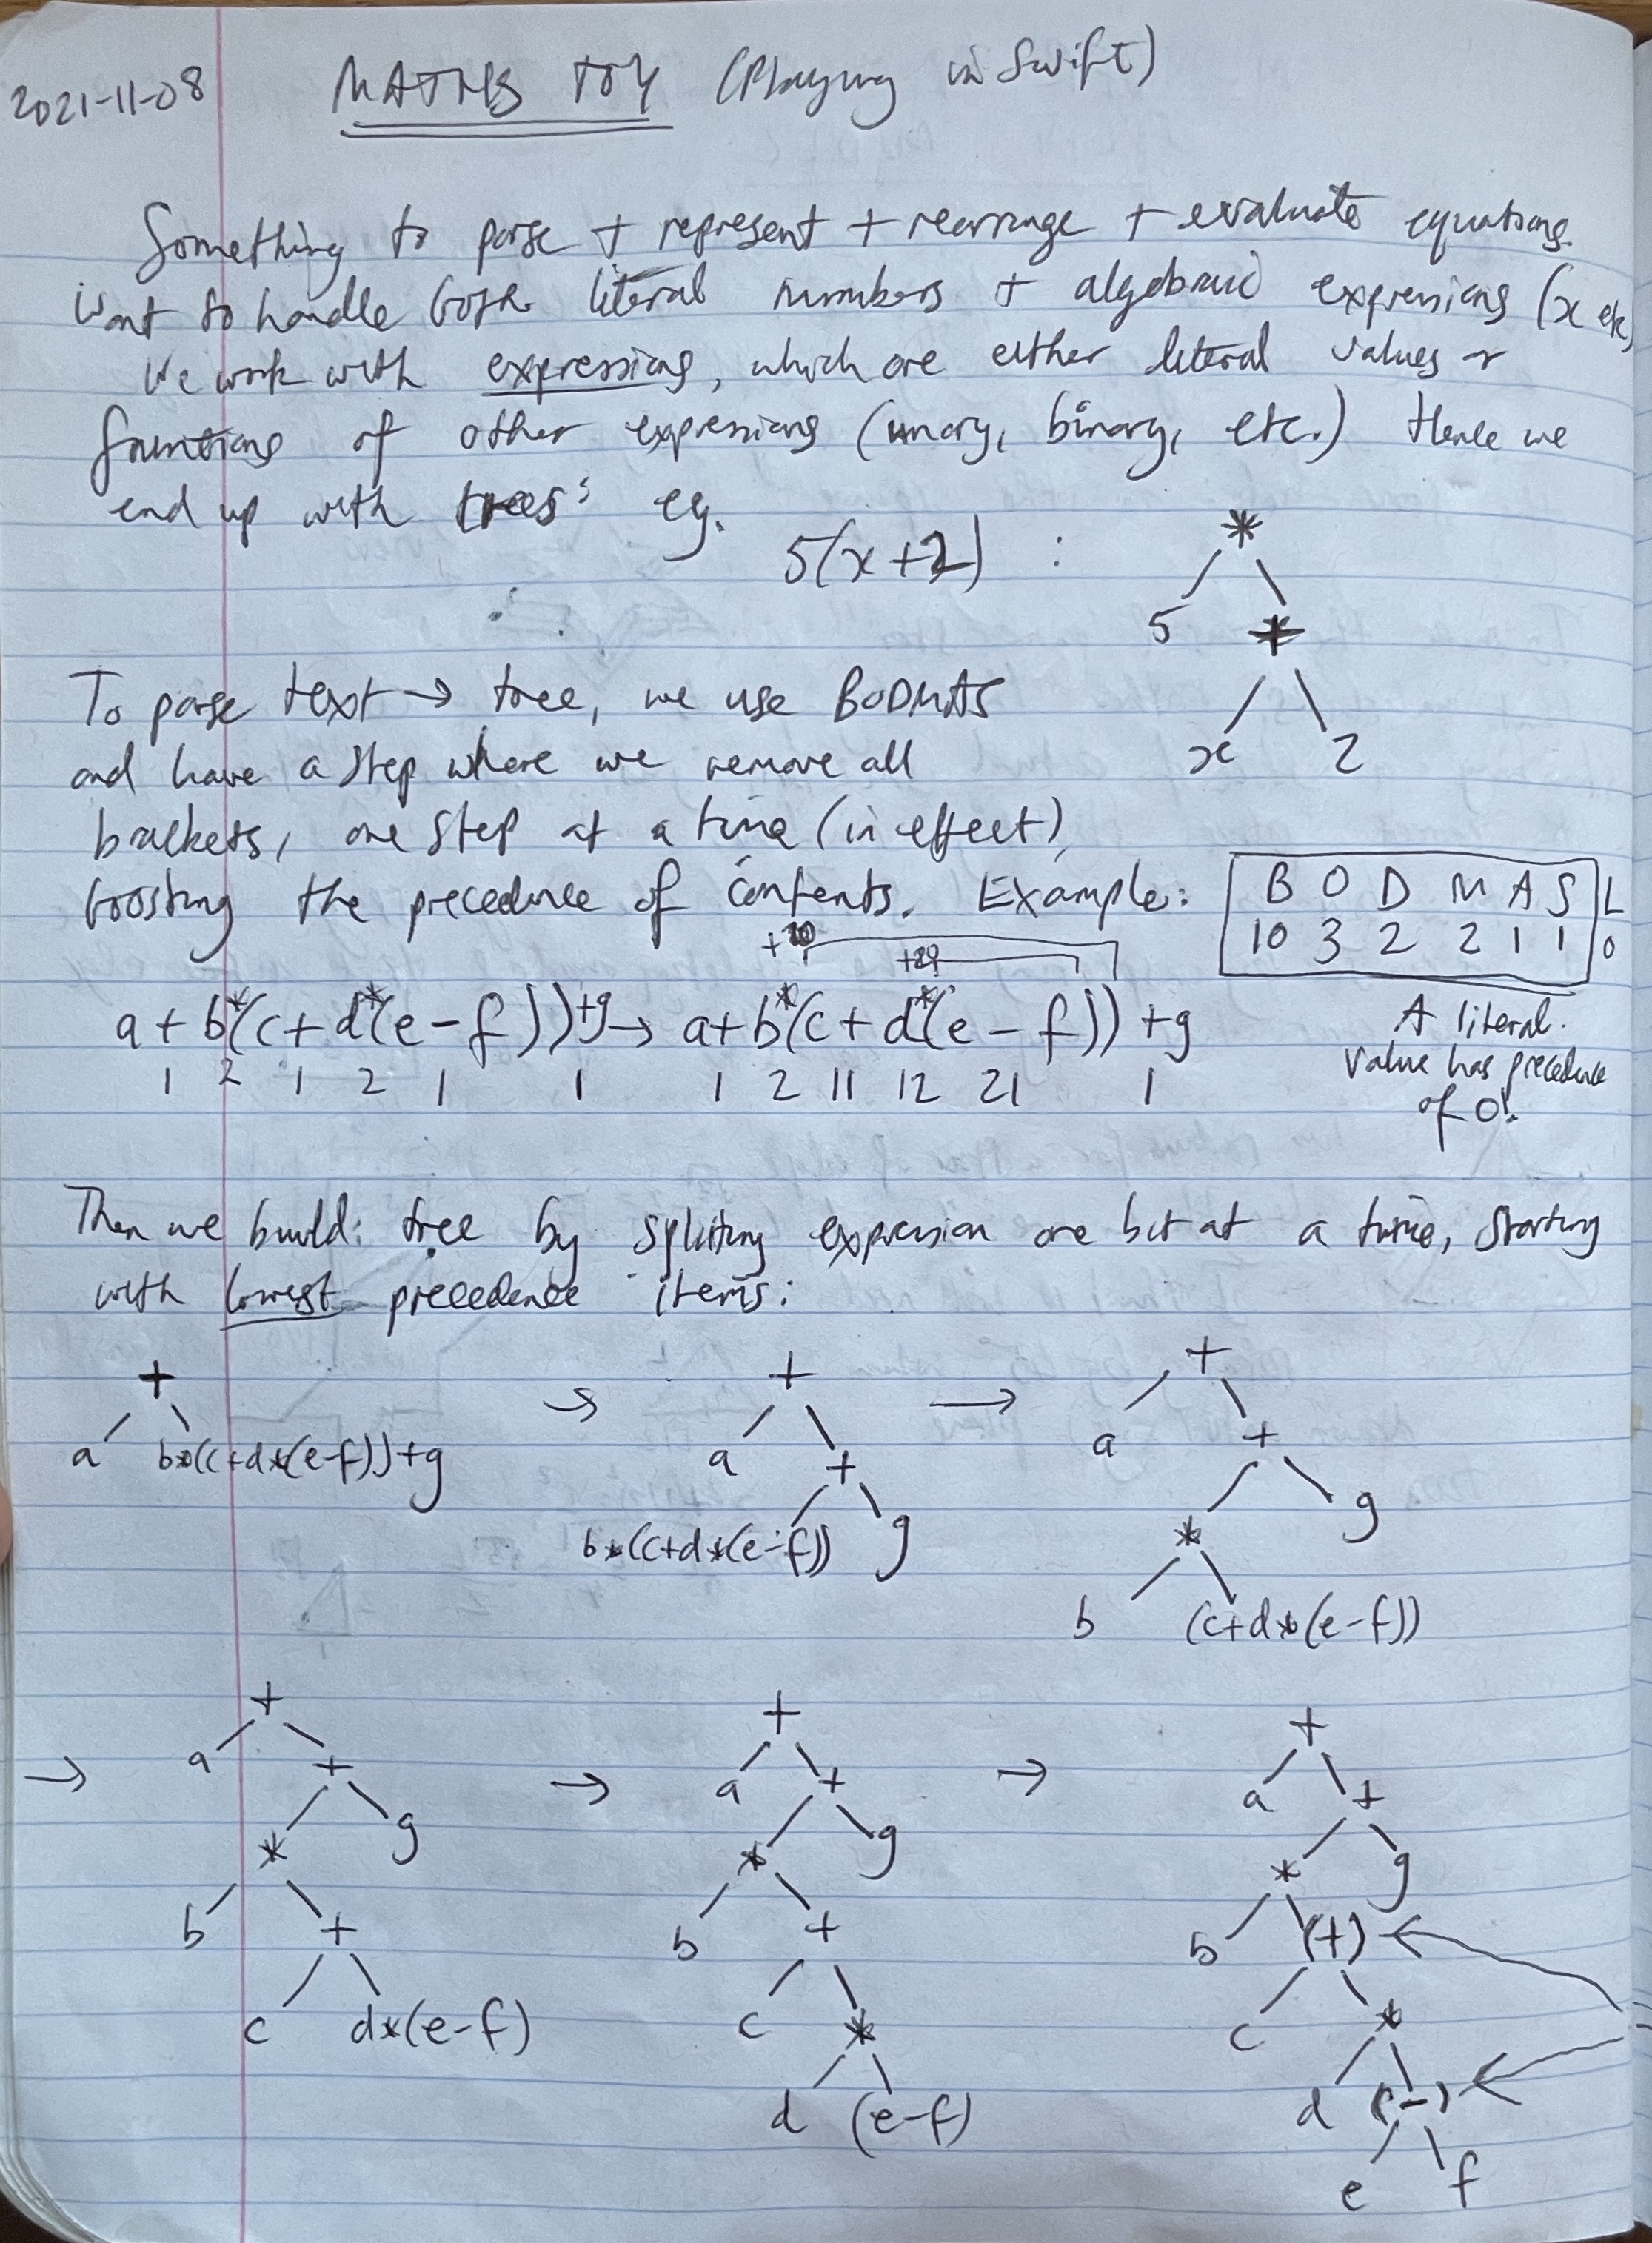 2021-11-08 MATHS TOY (Playing in Swift)
Something to parse + represent + rearrange + evaluate equations.
Want to handle both literal numbers + algebraic expressions (x etc)
We work with expressions, which are either literal values or
functions of other expressions (unary, binary, etc.) Hence we
end up with trees: eg.
5(x+2) :
*
5 +
x 2
To parse text → tree, we use BODMAS
and have a step where we remove all
brackets, one step at a time (in effect),
boosting the precedence of contents. Example:
B O D M A S L
10 3 2 2 1 1 0
A literal
value has precedence
of 0!
+10
+20
a + b*(c + d*(e - f))+g → a+b*(c + d*(e - f)) +g
1 2 1 2 1 1 1 2 11 12 21 1
Then we build tree by splitting expression one bit at a time, starting
with lowest precedence items:
+
a b*(c+d*(e-f))+g
→
+
a +
b*(c+d*(e-f)) g
→
+
a +
* g
b (c+d*(e-f))
→
+
a +
* g
b +
c d*(e-f)
→
+
a +
* g
b +
c *
d (e-f)
→
+
a +
* g
b (+)
c *
d (-)
e f